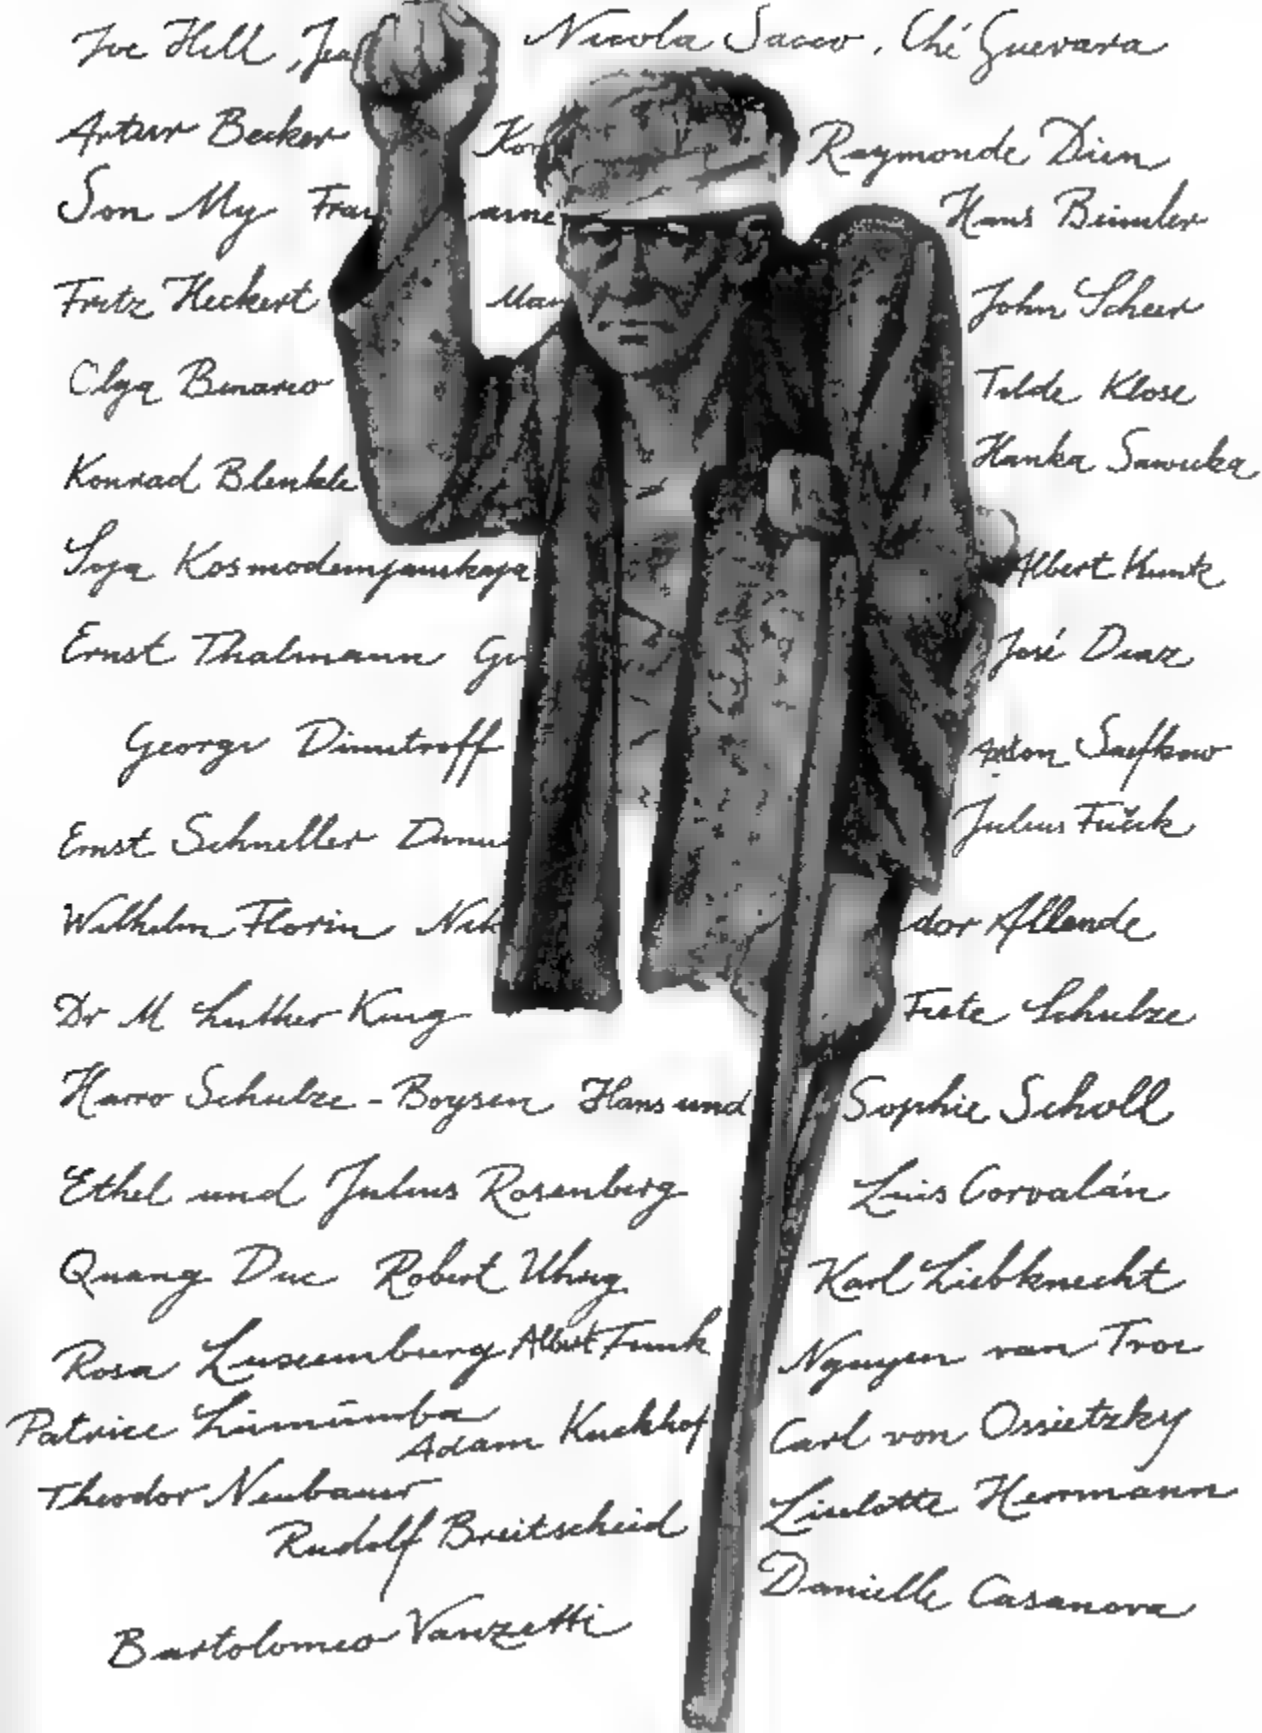 Joe Hill, Nicola Sacco, Ché Guevara
Artur Becker Raymonde Dien
Son My Hans Beimler
Fritz Heckert John Scheer
Olga Benario Tilde Klose
Konrad Blenkle Hanka Sawicka
Soja Kosmodemjanskaja Albert Kuntz
Ernst Thälmann José Diaz
Georgi Dimitroff Anton Saefkow
Ernst Schneller Julius Fučik
Wilhelm Florin dor Allende
Dr M Luther King Fiete Schulze
Harro Schulze-Boysen Hans und Sophie Scholl
Ethel und Julius Rosenberg Luis Corvalán
Quang Duc Robert Uhrig Karl Liebknecht
Rosa Luxemburg Albert Funk Nguyen van Troi
Patrice Lumumba Carl von Ossietzky
Adam Kuckhof
Theodor Neubauer Liselotte Herrmann
Rudolf Breitscheid
Danielle Casanova
Bartolomeo Vanzetti